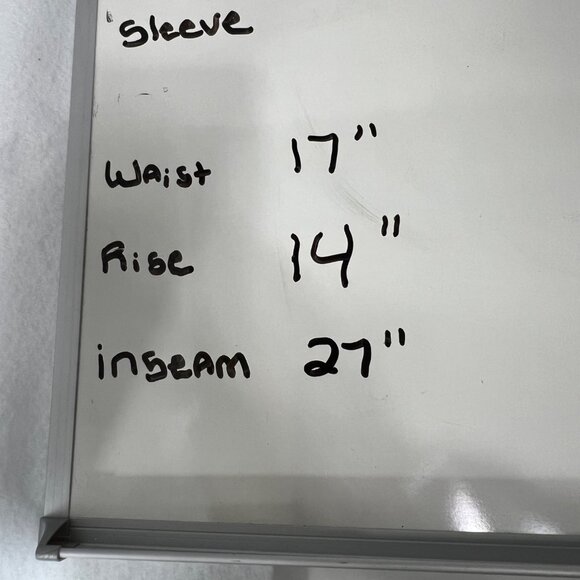 Sleeve
Waist 17"
Rise 14"
inseam 27"